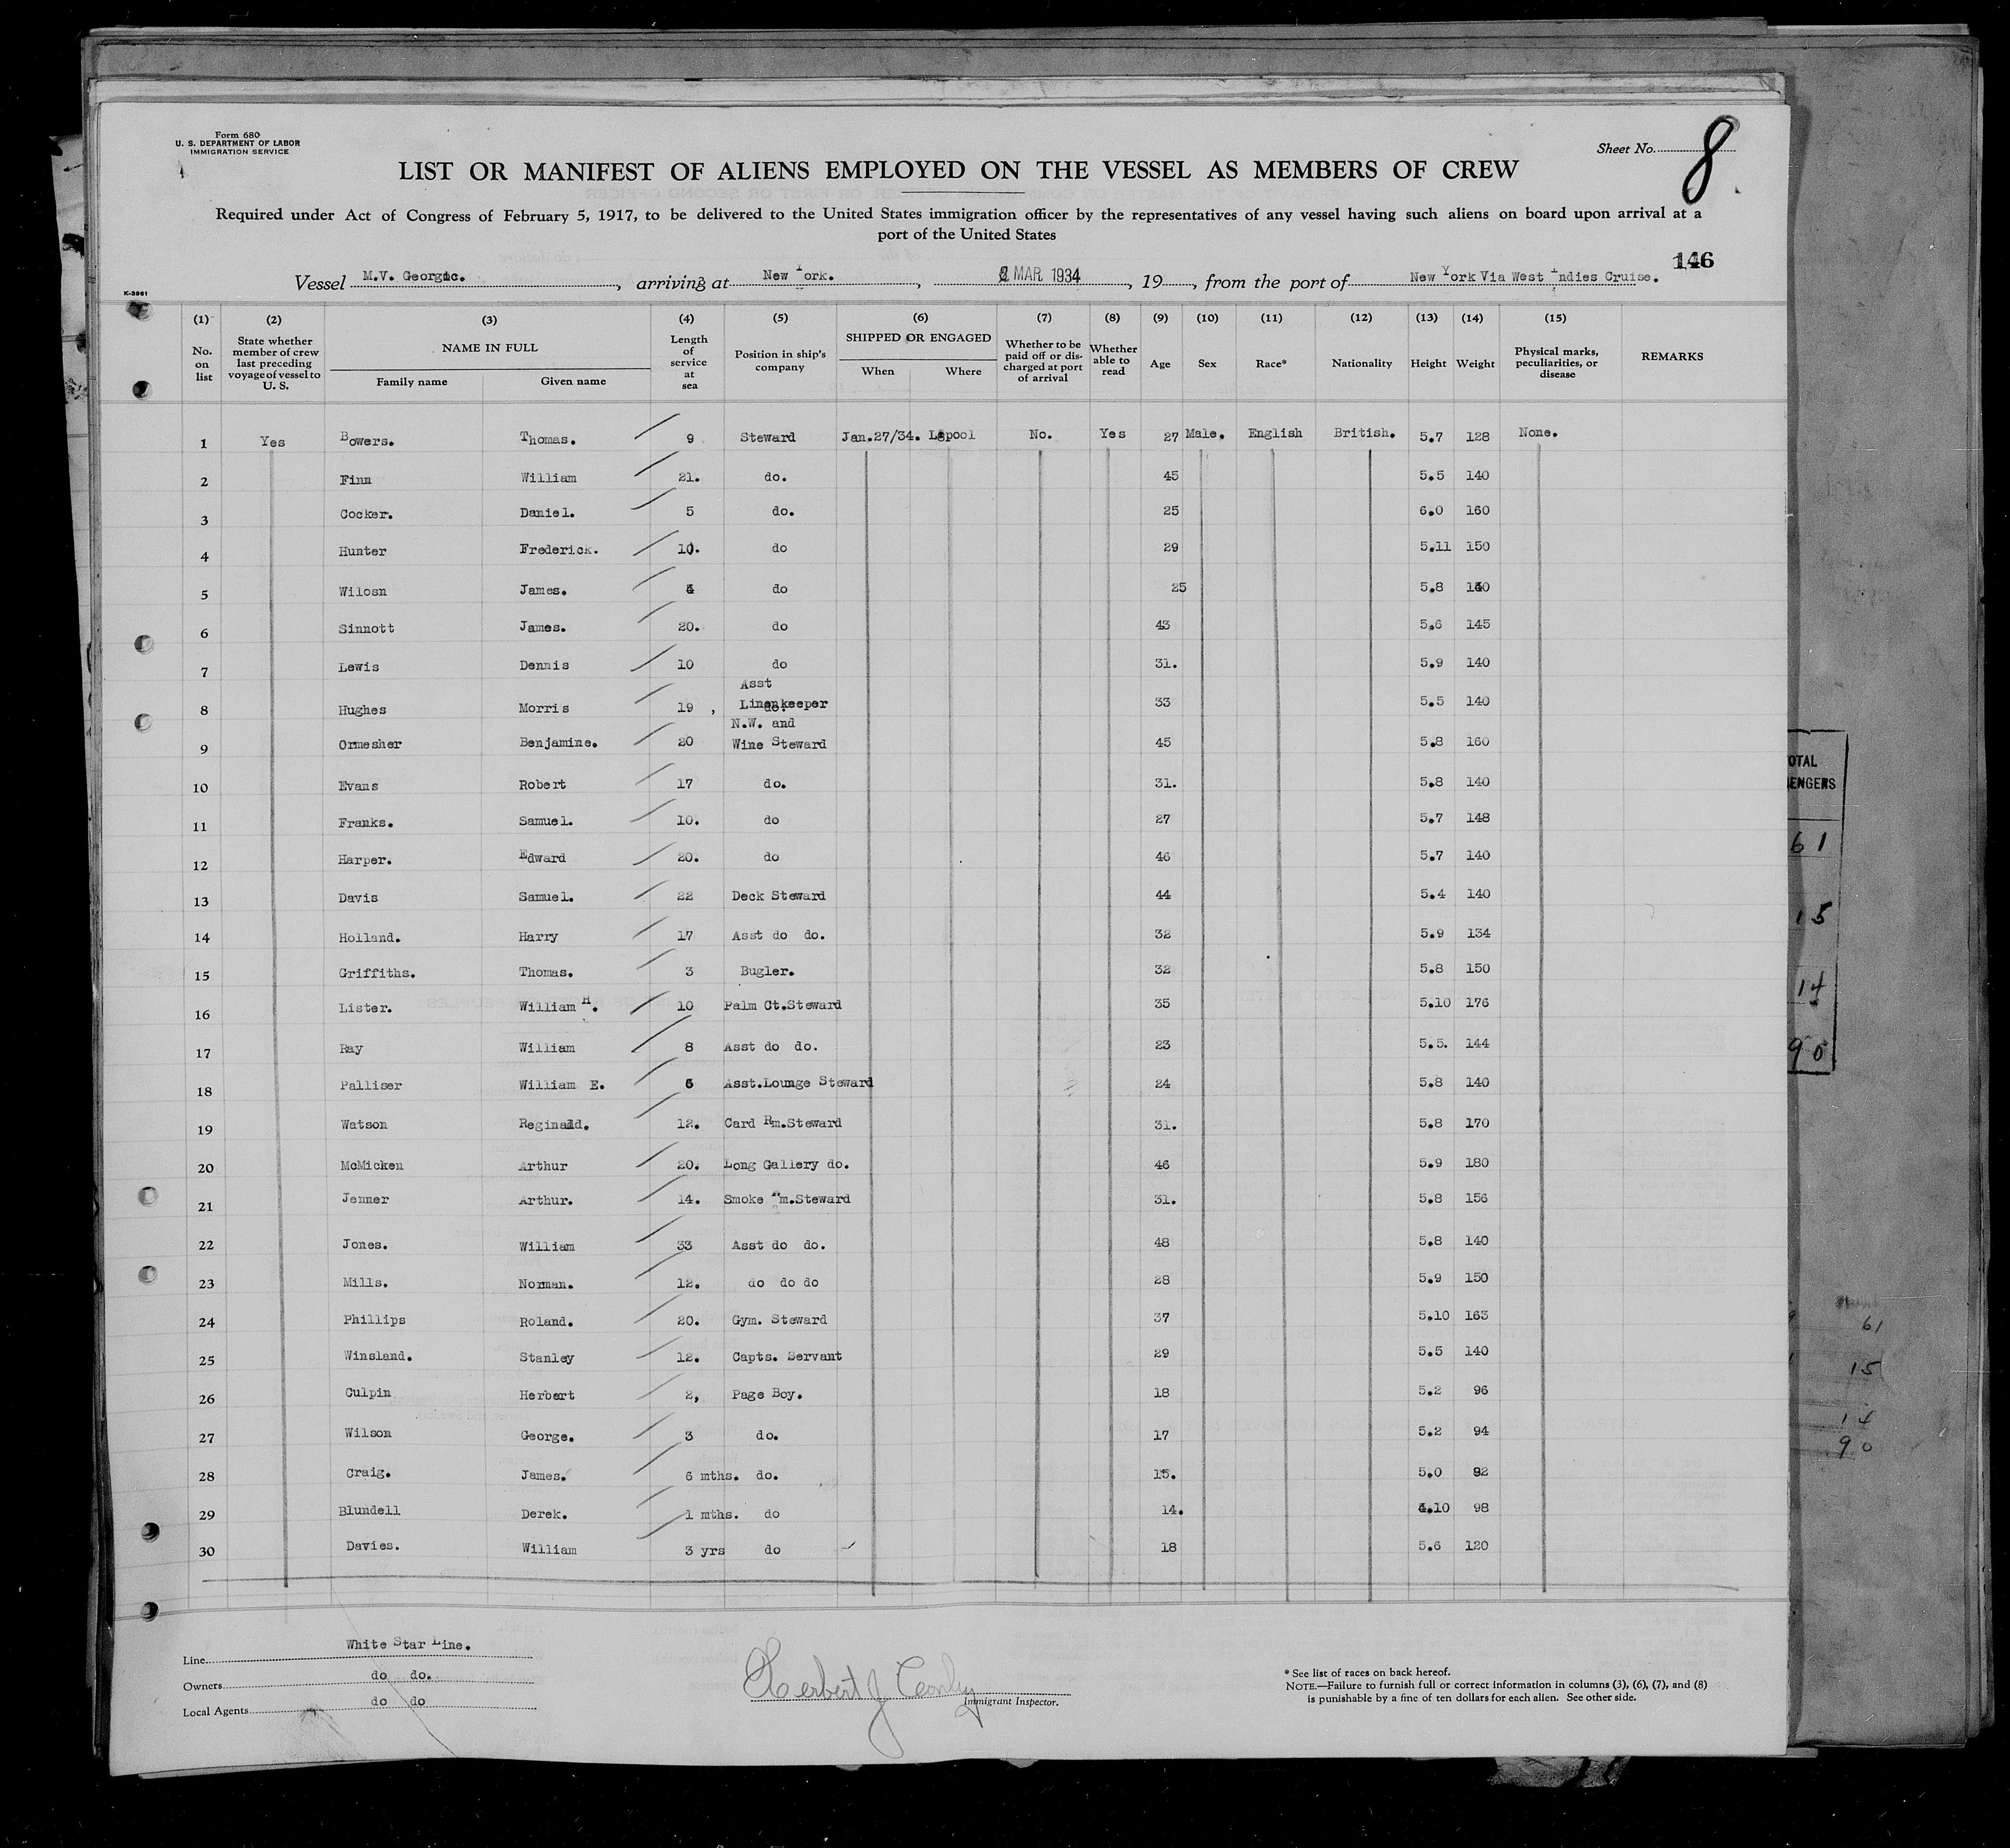 Form 680
U. S. DEPARTMENT OF LABOR
IMMIGRATION SERVICE
Sheet No. 8
LIST OR MANIFEST OF ALIENS EMPLOYED ON THE VESSEL AS MEMBERS OF CREW
Required under Act of Congress of February 5, 1917, to be delivered to the United States immigration officer by the representatives of any vessel having such aliens on board upon arrival at a
port of the United States
146
Vessel M.V. Georgic. , arriving at New York. , 2 MAR 1934 , 19 , from the port of New York Via West Indies Cruise.
K-3961
(1) (2) (3) (4) (5) (6) (7) (8) (9) (10) (11) (12) (13) (14) (15)
No. on list State whether member of crew last preceding voyage of vessel to U. S. NAME IN FULL Family name Given name Length of service at sea Position in ship's company SHIPPED OR ENGAGED When Where Whether to be paid off or discharged at port of arrival Whether able to read Age Sex Race* Nationality Height Weight Physical marks, peculiarities, or disease REMARKS
1 Yes Bowers. Thomas. 9 Steward Jan.27/34. Lpool No. Yes 27 Male. English British. 5.7 128 None.
2 Finn William 21. do. 45 5.5 140
3 Cocker. Daniel. 5 do. 25 6.0 160
4 Hunter Frederick. 10. do 29 5.11 150
5 Wilosn James. 4 do 25 5.8 140
6 Sinnott James. 20. do 43 5.6 145
7 Lewis Dennis 10 do 31. 5.9 140
8 Hughes Morris 19 , Asst Linenkeeper 33 5.5 140
9 Ormesher Benjamine. 20 N.W. and Wine Steward 45 5.8 160
10 Evans Robert 17 do. 31. 5.8 140
11 Franks. Samuel. 10. do 27 5.7 148
12 Harper. Edward 20. do 46 5.7 140
13 Davis Samuel. 22 Deck Steward 44 5.4 140
14 Holland. Harry 17 Asst do do. 32 5.9 134
15 Griffiths. Thomas. 3 Bugler. 32 5.8 150
16 Lister. William H. 10 Palm Ct.Steward 35 5.10 176
17 Ray William 8 Asst do do. 23 5.5. 144
18 Palliser William E. 6 Asst.Lounge Steward 24 5.8 140
19 Watson Reginald. 12. Card Rm.Steward 31. 5.8 170
20 McMicken Arthur 20. Long Gallery do. 46 5.9 180
21 Jenner Arthur. 14. Smoke Rm.Steward 31. 5.8 156
22 Jones. William 33 Asst do do. 48 5.8 140
23 Mills. Norman. 12. do do do 28 5.9 150
24 Phillips Roland. 20. Gym. Steward 37 5.10 163
25 Winsland. Stanley 12. Capts. Servant 29 5.5 140
26 Culpin Herbert 2, Page Boy. 18 5.2 96
27 Wilson George. 3 do. 17 5.2 94
28 Craig. James. 6 mths. do. 15. 5.0 92
29 Blundell Derek. 1 mths. do 14. 4.10 98
30 Davies. William 3 yrs do 18 5.6 120
Line White Star Line.
Owners do do.
Local Agents do do
Herbert J
Immigrant Inspector.
* See list of races on back hereof.
NOTE.—Failure to furnish full or correct information in columns (3), (6), (7), and (8)
is punishable by a fine of ten dollars for each alien. See other side.
OTAL
ENGERS
61
15
14
90
61
15
14
90